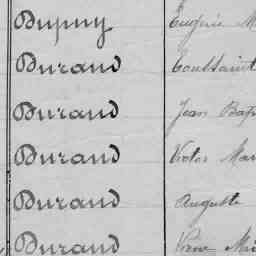 Dupuy Eugénie M
Durand Toussaint
Durand Jean Bap
Durand Victor Mar
Durand Auguste
Durand Pierre